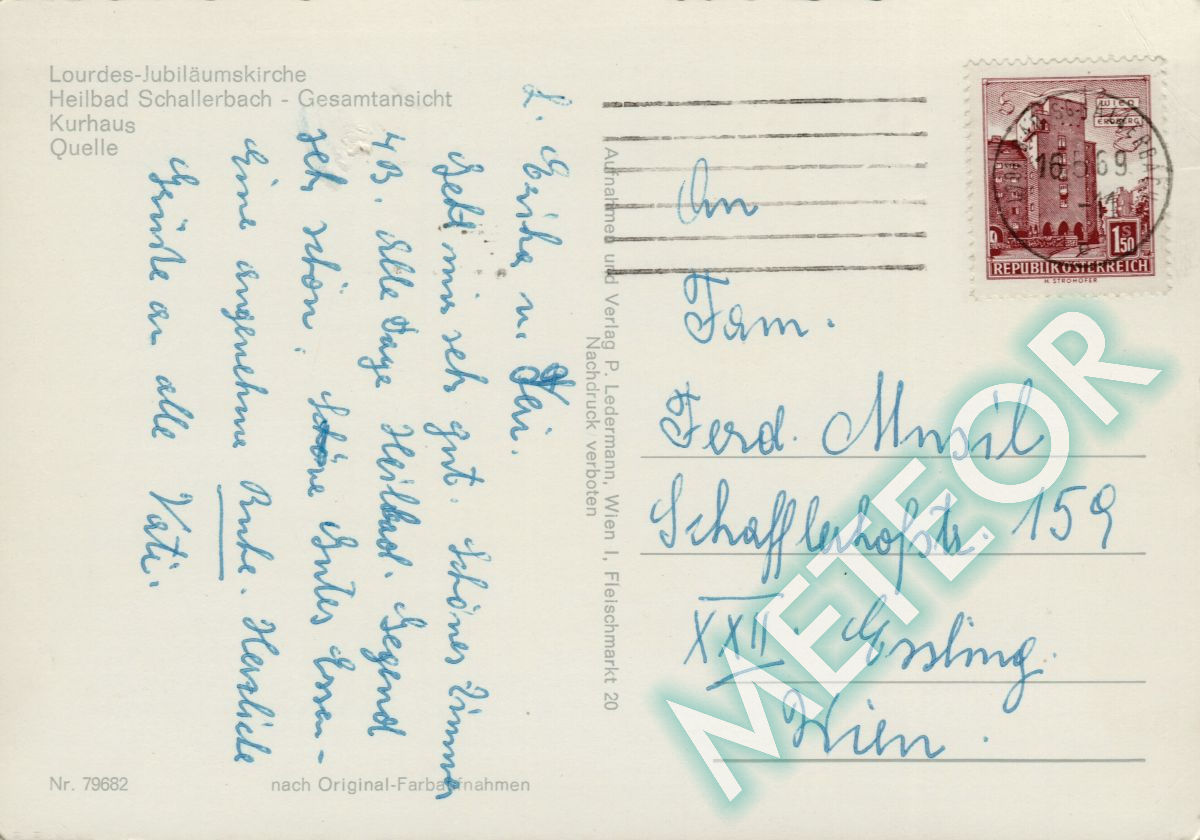 Lourdes-Jubiläumskirche
Heilbad Schallerbach - Gesamtansicht
Kurhaus
Quelle
L. Erika u. Feri.
Geht mir seh gut. Schönes Zimmer
4B. Alle Tage Heilbad. Gegend
seh schön. Schöne Gutes Essen -
Eine angenehme Ruhe. Herzliche
Grüße an alle Vati.
Nr. 79682
nach Original-Farbaufnahmen
Aufnahmen und Verlag P. Ledermann, Wien I, Fleischmarkt 20
Nachdruck verboten
WIEN
ERDBERG
16.5.69
1S50
REPUBLIK ÖSTERREICH
H. STROHOFER
An
Fam.
Ferd. Musil
Schafflerhofstr. 159
XXII. Essling.
Wien.
METEOR